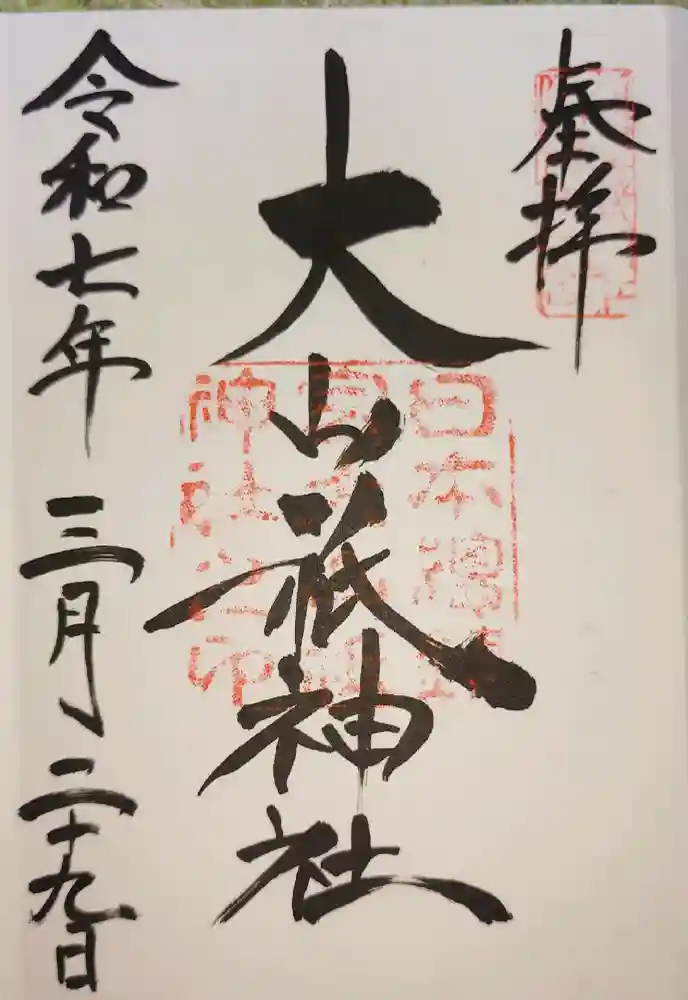 奉拝
大山祇神社
令和七年 三月 二十九日
日本總鎮
神社之印